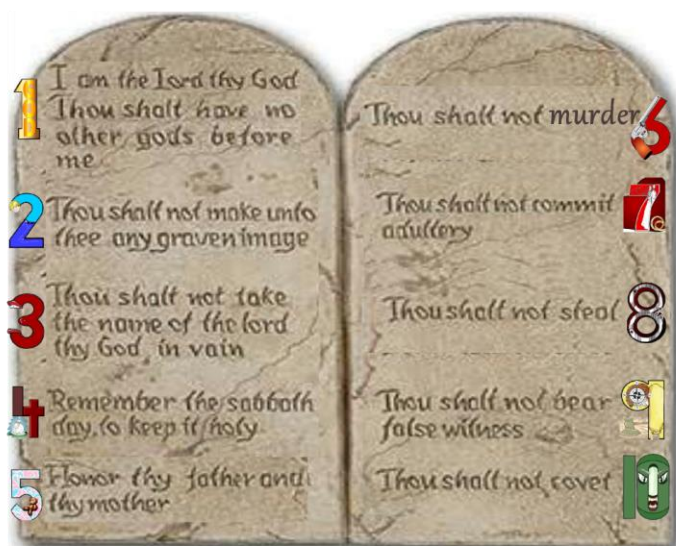 1
I am the Lord thy God
Thou shalt have no
other gods before
me
2
Thou shalt not make unto
thee any graven image
3
Thou shalt not take
the name of the lord
thy God in vain
4
Remember the sabbath
day, to keep it holy
5
Honor thy father and
thy mother
6
Thou shalt not murder
7
Thou shalt not commit
adultery
8
Thou shalt not steal
9
Thou shalt not bear
false witness
10
Thou shalt not covet